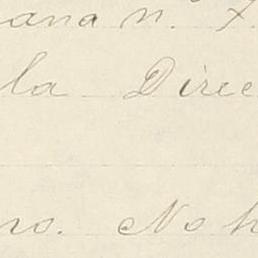 ana n. 7.
la Direc
ro. No h